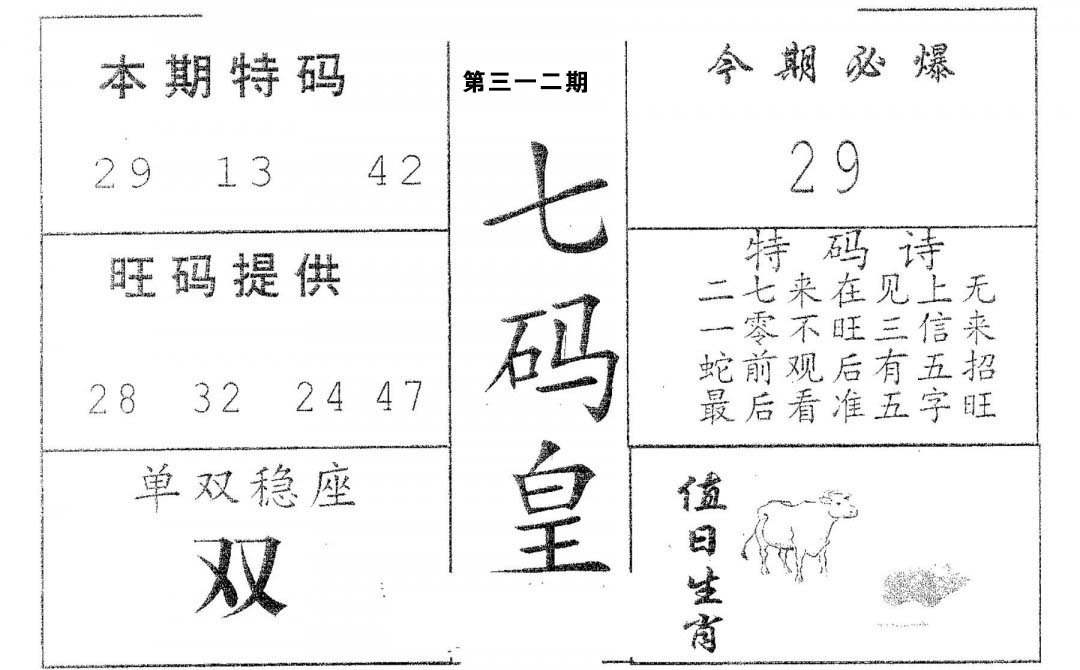 本期特码
29 13 42
旺码提供
28 32 24 47
单双稳座
双
第三一二期
七码皇
今期必爆
29
特码诗
二七来在见上无
一零不旺三信来
蛇前观后有五招
最后看准五字旺
值日生肖